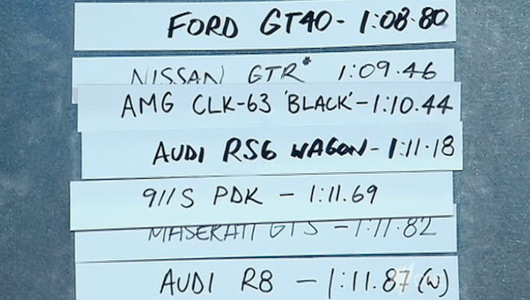 FORD GT40 - 1:08.80
NISSAN GTR* 1:09.46
AMG CLK-63 'BLACK' - 1:10.44
AUDI RS6 WAGON - 1:11.18
911S PDK - 1:11.69
MASERATI GTS - 1:11.82
AUDI R8 - 1:11.87 (W)